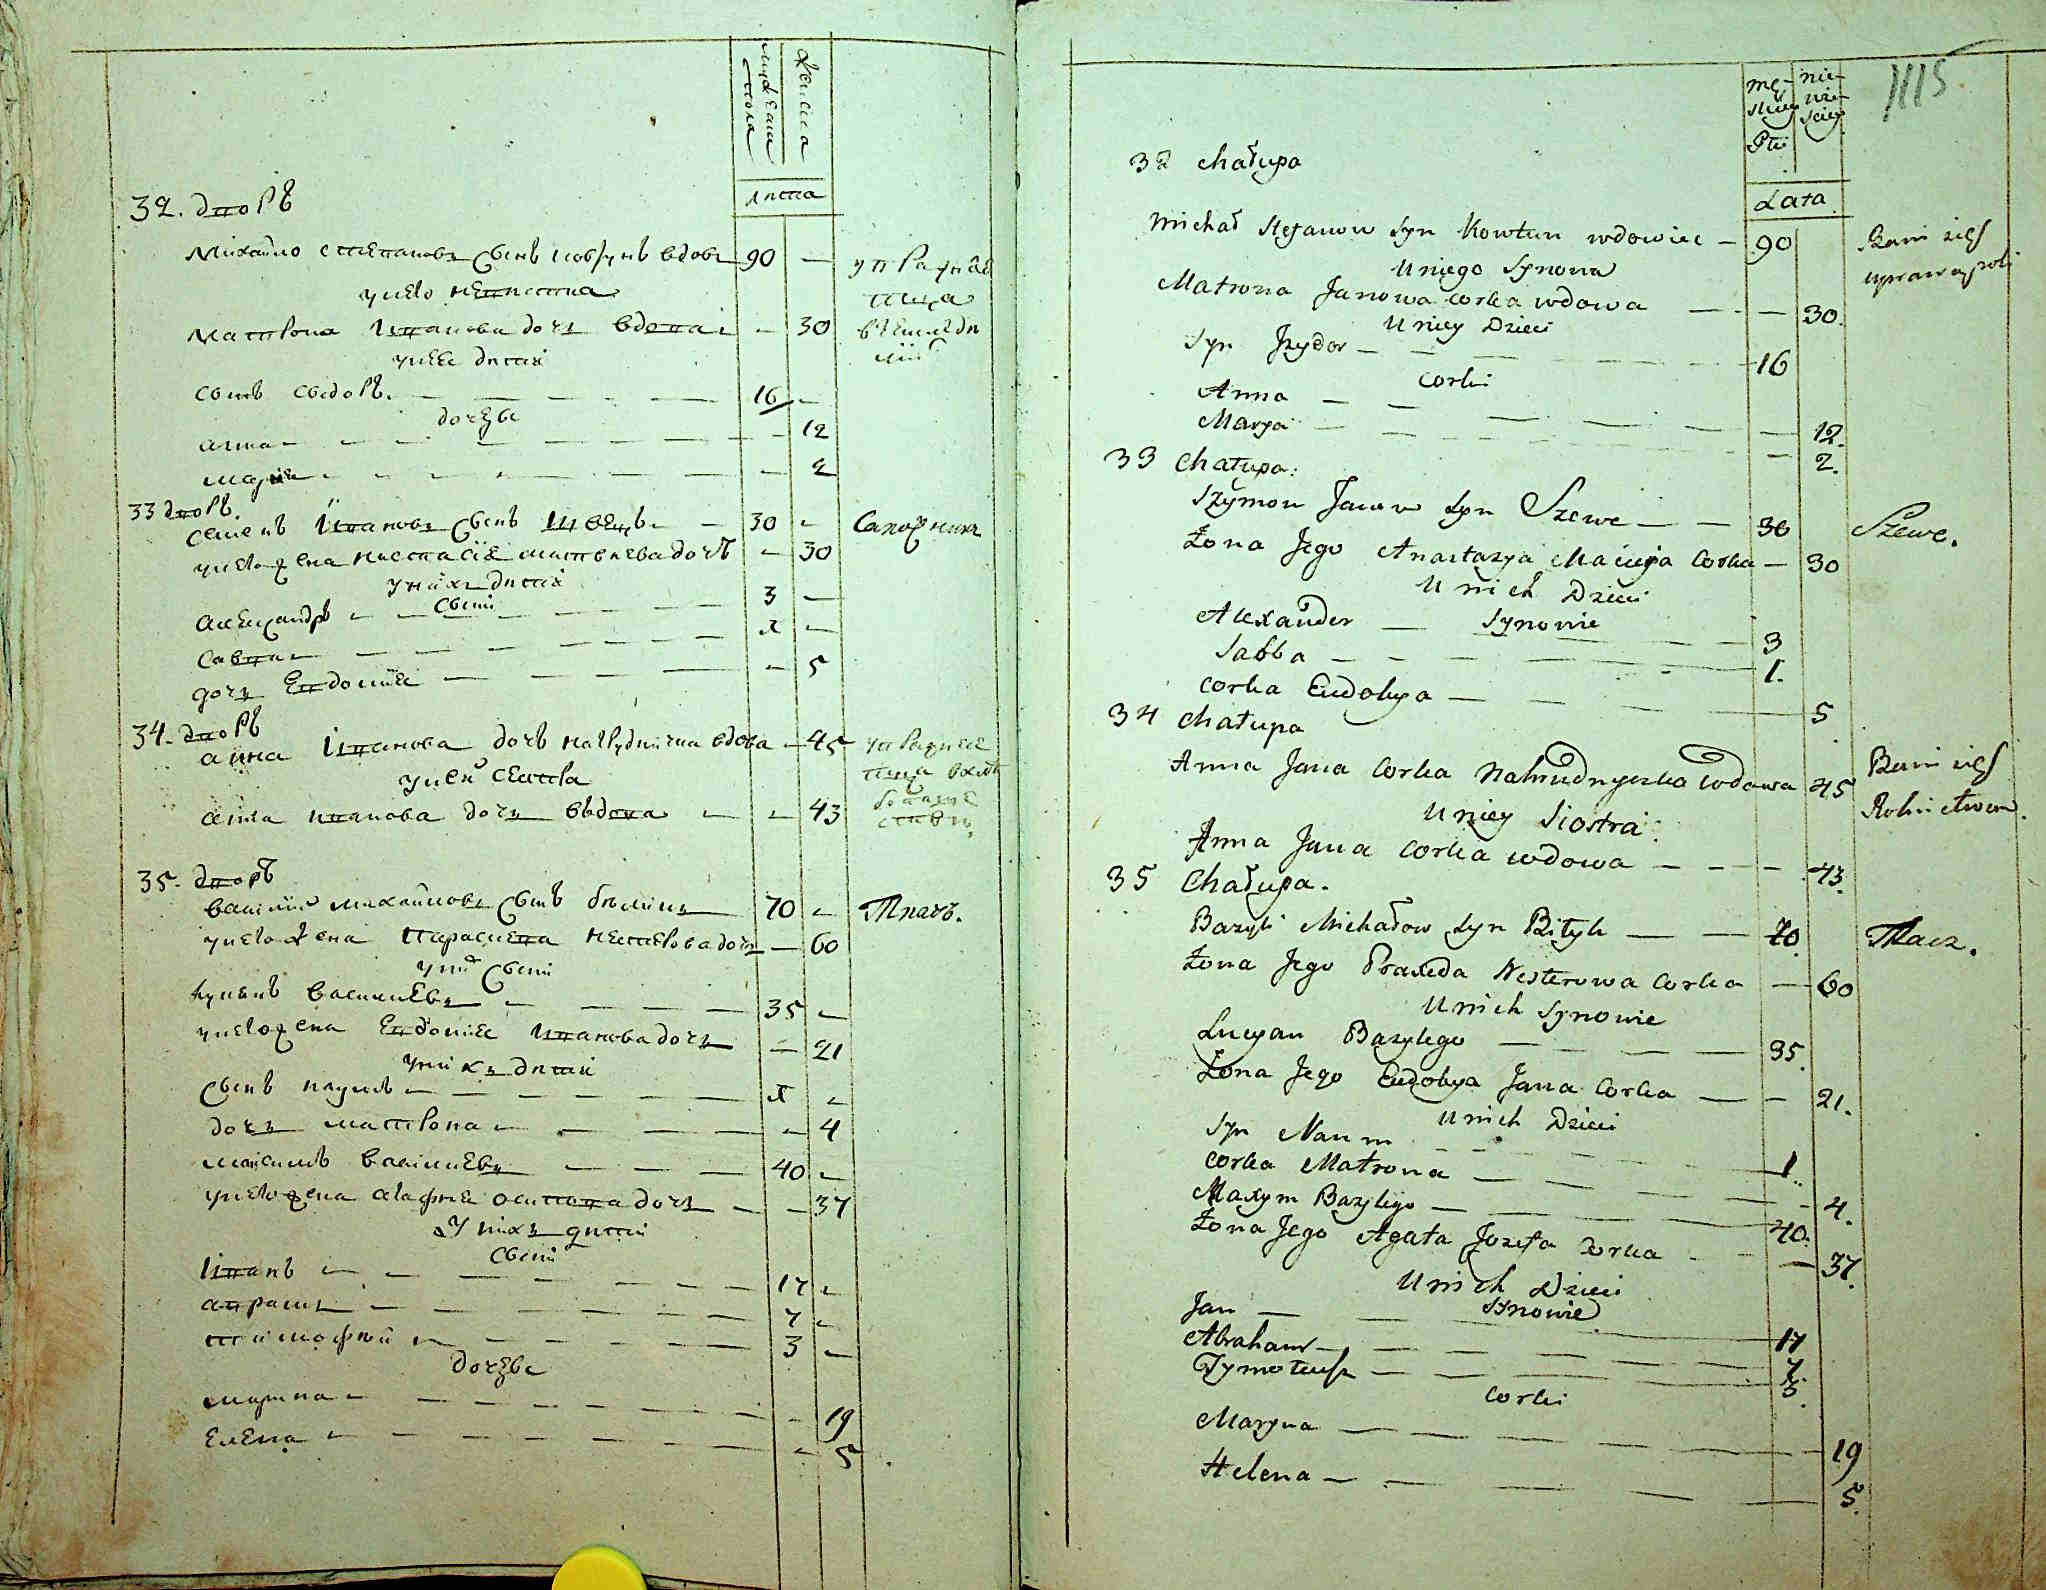 мужеска пола
женска
лета
32. дворъ
Михайло степановъ сынъ ковтунъ вдовъ 90 —
у него невестка
матрона иванова дочь вдова — 30
у нее дети
сынъ сидоръ 16 —
дочери
анна — 12
мария — 2
33 дворъ.
семенъ Ивановъ сынъ Швецъ 30 — Сапожникъ
у него жена настасия матвеева дочь — 30
у нихъ дети
сыни
александръ 3 —
савва 1 —
дочь Евдокия — 5
34. дворъ
анна Иванова дочь нагруднична вдова — 45
у ней сестра
анна иванова дочь вдова — 43
35. дворъ
василий михайловъ сынъ билик 70 — Ткачъ.
у него жена параскева нестерова дочь — 60
у них сыни
лукянъ василиевъ 35 —
у него жена Евдокия иванова дочь — 21
у нихъ дети
сынъ наумъ 1 —
дочь матрона — 4
максимъ василиевъ 40 —
у него жена агафия осипова дочь — 37
У нихъ дети
сыни
Иванъ 17 —
абрамъ 7 —
тимофей 3 —
дочери
марина — 19
елена — 5
mę-skiey Płci
nie-wie-sciey
1115
Lata
32 chałupa
Michał Stefanow Syn Kowtun wdowiec — 90 Bawi się
uprawą roli
U niego Synowa
Matrona Janowa corka wdowa — — 30.
U niey Dzieci
Syn Jzydor — 16
corki
Anna — 12.
Marya — 2.
33 Chałupa.
Szymon Janow Syn Szewc — 30 Szewc.
Żona Jego Anastazya Macieja Corka — 30
U nich Dzieci
Synowie
Alexander — 3
Sabba — 1.
corka Eudokya — 5
34 chałupa
Anna Jana Corka Nahrudnyczka wdowa 45 Bawi się
Rolnictwem.
U niey Siostra
Anna Jana Corka wdowa — 43.
35 Chałupa.
Bazyli Michałow Syn Bityk — 70. Tkacz.
Żona Jego Praxeda Nesterowa Corka — 60
U nich Synowie
Lucyan Bazylego — 35.
Żona Jego Eudokya Jana Corka — 21.
U nich Dzieci
Syn Naum 1.
corka Matrona — 4.
Maxym Bazylego — 40.
Żona Jego Agata Jozefa Corka — 37.
U nich Dzieci
Synowie
Jan — 17
Abraham — 7
Tymoteusz — 3.
corki
Maryna — 19
Helena — 5.